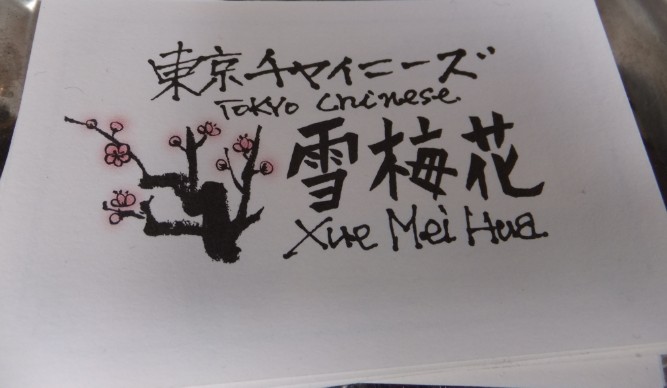 東京チャイニーズ
Tokyo Chinese
雪梅花
Xue Mei Hua